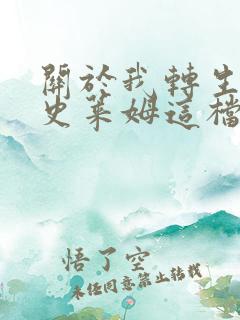 關於我轉生
史萊姆這檔
悟了空
未經同意禁止轉載